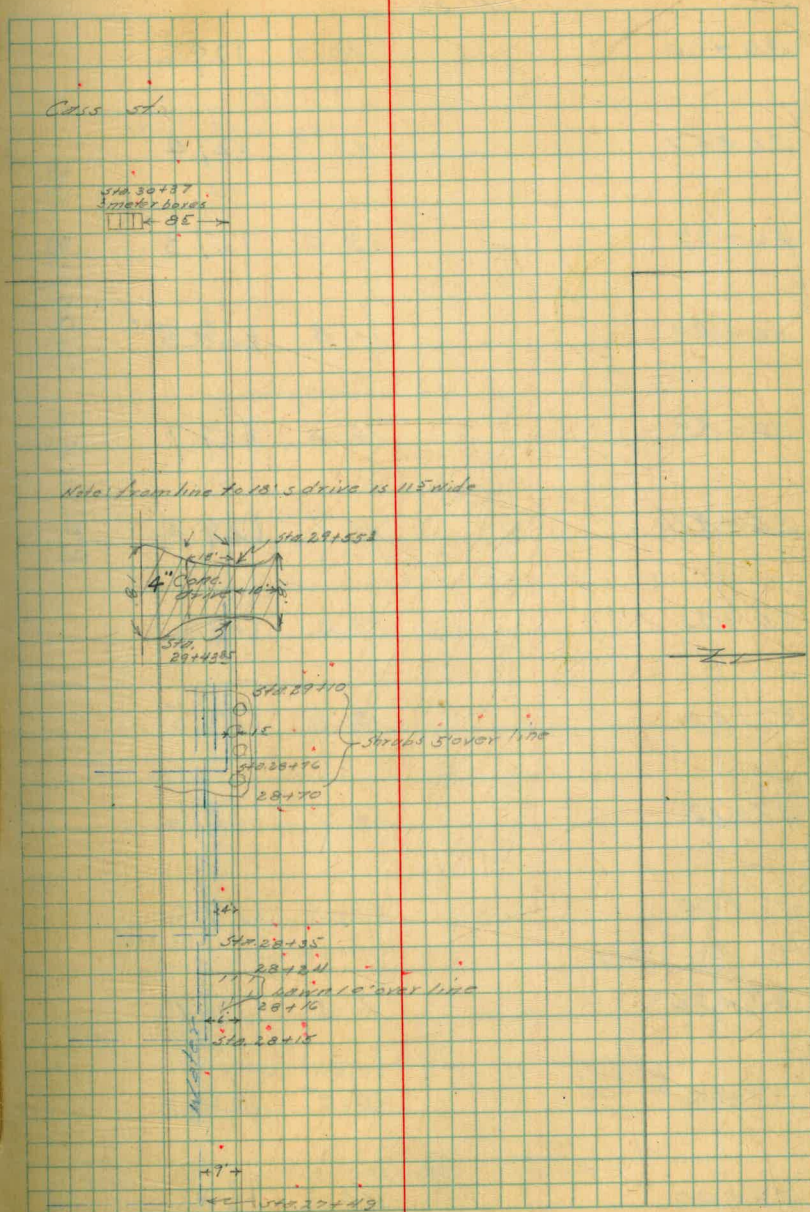 Cass St.
Sta. 30+37
3 meter boxes
Note: from line to 18' s drive is 11⁵ wide
Sta. 29+55³
18'
4" Conc.
drive
10'
18'
18'
Sta.
29+43⁸⁵
Sta. 29+10
15
Shrubs 5' over line
Sta. 28+76
28+70
Sta. 28+35
28+24
Lawn 10' over line
28+16
6'
Sta. 28+15
Water
9'
Sta. 27+49